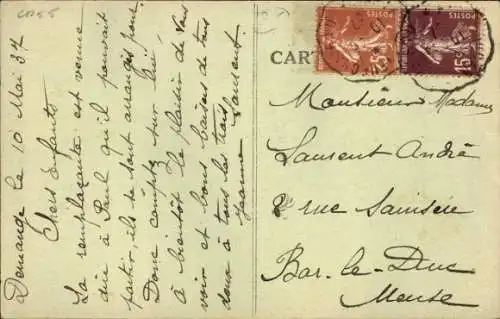 Demange le 10 Mai 37
Chers enfants
La remplaçante est venue
dire à Paul qu'il pouvait
partir, ils se sont arrangés pour
Donc comptez sur lui
à bientôt le plaisir de vous
voir et bons baisers de tous
deux à tous les trois
Jeanne Laurent
POSTES
POSTES
15c
CART
Monsieur Madame
Laurent André
8 rue Sainsère
Bar-le-Duc
Meuse